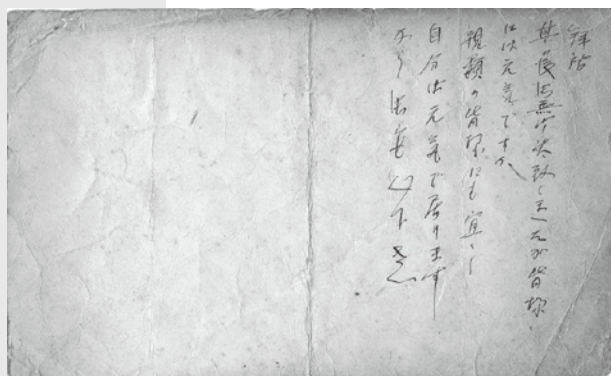 拝啓
其後御無沙汰致しましたが皆様
には元気ですか
親類の皆様にも宜しく
自分は元気で居ります
から御安心下さい